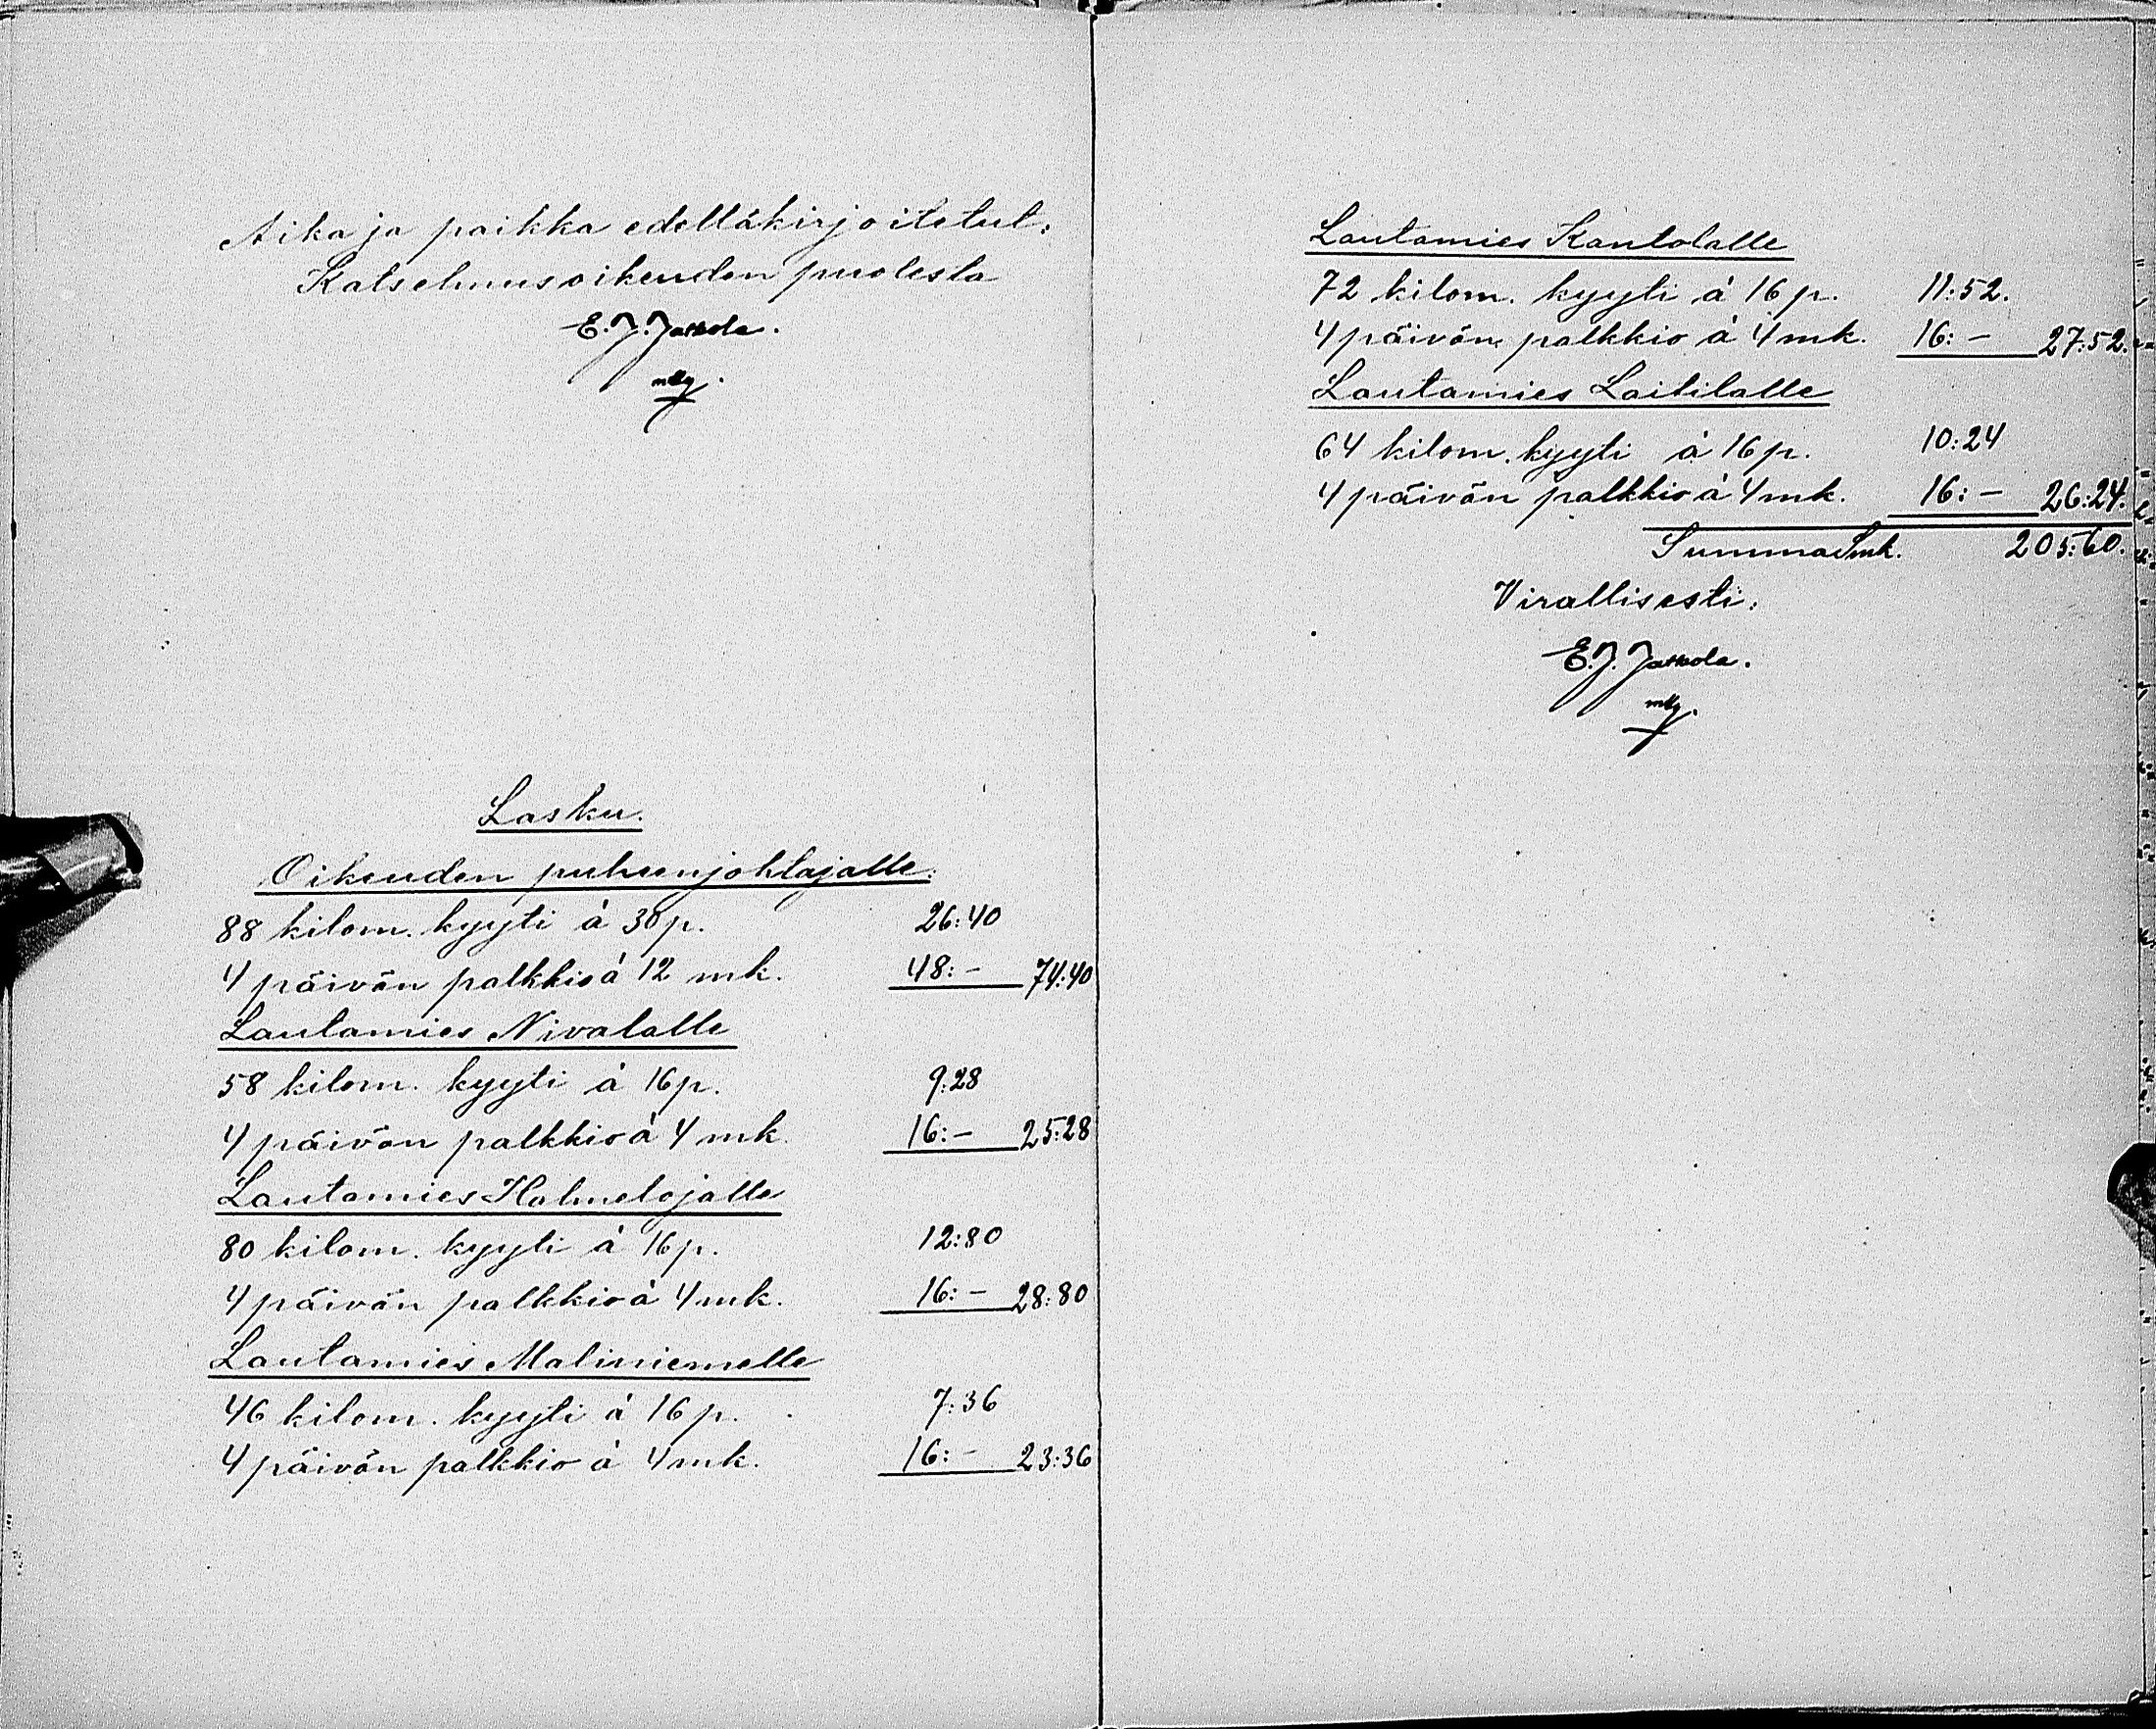 Aika ja paikka edelläkirjoitetut:
Katselmusoikeuden puolesta
E. J. Jaakola.
Lasku.
Oikeuden puheenjohtajalle:
88 kilom. kyyti á 30 p. 26:40
4 päivän palkkio á 12 mk. 48:- 74:40
Lautamies Nivalalle
58 kilom. kyyti á 16 p. 9:28
4 päivän palkkio á 4 mk. 16:- 25:28
Lautamies Halmelojalle
80 kilom. kyyti á 16 p. 12:80
4 päivän palkkio á 4 mk. 16:- 28:80
Lautamies Maliniemelle
46 kilom. kyyti á 16 p. 7:36
4 päivän palkkio á 4 mk. 16:- 23:36
Lautamies Kantolalle
72 kilom. kyyti á 16 p. 11:52.
4 päivän palkkio á 4 mk. 16:- 27:52.
Lautamies Laitilalle
64 kilom. kyyti á 16 p. 10:24
4 päivän palkkio á 4 mk. 16:- 26:24.
Summa Smk. 205:60.
Virallisesti:
E. J. Jaakola.